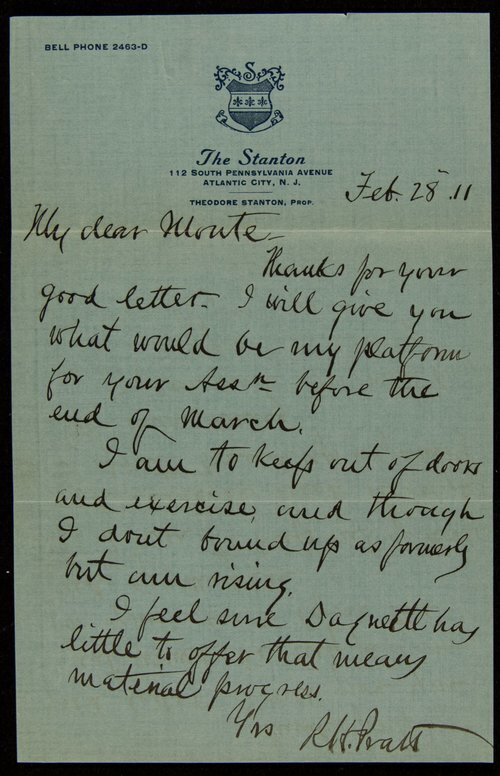 BELL PHONE 2463-D
S
The Stanton
112 SOUTH PENNSYLVANIA AVENUE
ATLANTIC CITY, N. J.
THEODORE STANTON, PROP.
Feb. 28 . 11
My dear Monte -
Thanks for your
good letter - I will give you
what would be my platform
for your Assn before the
end of March.
I am to keep out of doors
and exercise, and though
I dont bound up as formerly
but am rising.
I feel sure Dagnett has
little to offer that means
material progress.
Yrs R.H. Pratt